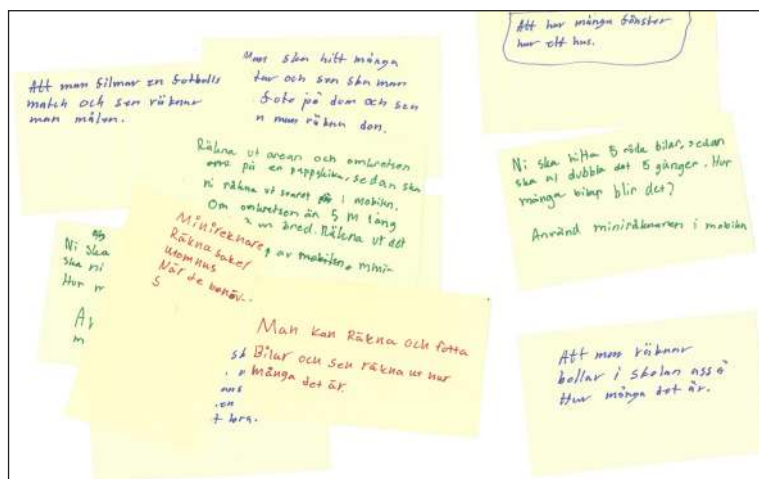 Att man filmar en fotbolls
match och sen räknar
man målen.
Man ska hitt många
tar och sen ska man
foto på dom och sen
n man räkna don.
Att hur många fönster
har ett hus.
Räkna ut arean och omkretsen
på en pappskiva, sedan ska
ni räkna ut svaret i mobilen.
Om omkretsen än 5 M lång
x m bred. Räkna ut det
av mobilen, mini-
Ni ska hitta 5 röda bilar, sedan
ska ni dubbla det 5 gånger. Hur
många bilar blir det?
Använd miniräknaren i mobilen
Ni ska
ska ni
Hur m
Ar
m
Minireknare,
Räkna saker
utomhus
När de behöv..
S
Man kan Räkna och fotta
Bilar och sen räkna ut hur
många det är.
sk
ans
.en
t bra.
Att man räknar
bollar i skolan asså
Hur många det är.